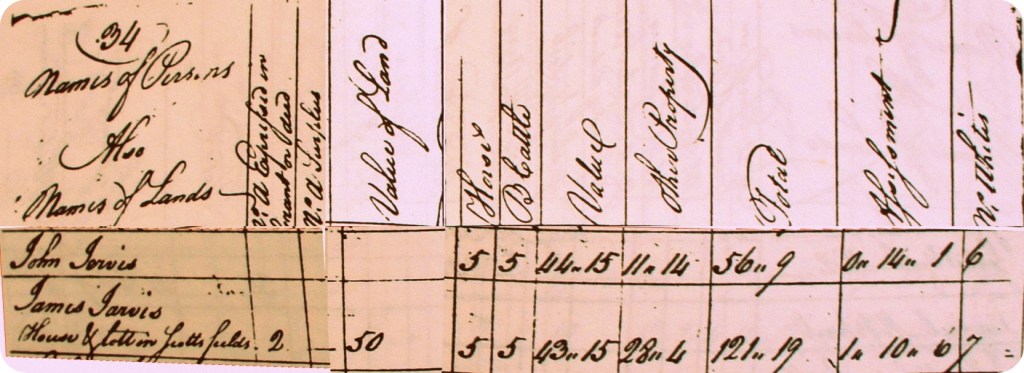 34
Names of Persons
Also
Names of Lands
No. A Expressed in
Grant or deed
No. A Surplus
Value of Land
Horse
B Cattle
Value
Other Property
Total
Assessment
No. Whites
John Jervis 5 5 44 " 15 11 " 14 56 " 9 0 " 14 " 1 6
James Jarvis
House & lott in Scotts fields 2 50 5 5 43 " 15 28 " 4 121 " 19 1 " 10 " 6 7